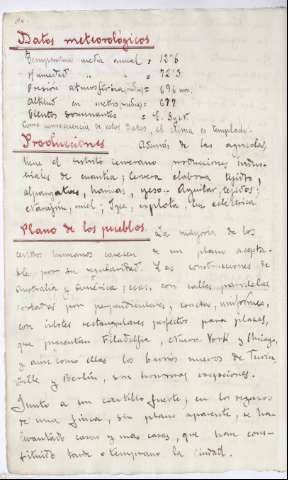 Datos meteorológicos
Temperatura media anual = 12º6
Humedad " " = 72º3
Presión atmosférica = 696 mm.
Altitud en metros = 677
Vientos dominantes = E. S y N.
Como consecuencia de estos datos, el clima es templado.
Producciones Además de las agrícolas
tiene el distrito cerverano producciones indus-
triales de cuantía; Cervera elabora tejidos
alpargatas, harinas, yeso. Aguilar, tejidos;
Navajún, miel; Igea, explota, luz eléctrica
Plano de los pueblos. La mayoría de los
centros humanos carecen de un plano acepta-
ble por su regularidad. Las construcciones de
Australia y América; esas, con calles paralelas
cortadas por perpendiculares, exactas, uniformes,
con islotes rectangulares, perfectos para plazas,
que presentan Filadelfia, Nueva York y Chicago,
y aun como ellas los barrios nuevos de Turín,
Lille y Berlín, son honrosas excepciones.
Junto a un castillo fuerte, en los regazos
de una finca, sin plano aparente, se han
levantado casas y más casas, que han cons-
tituido tarde o temprano la ciudad.